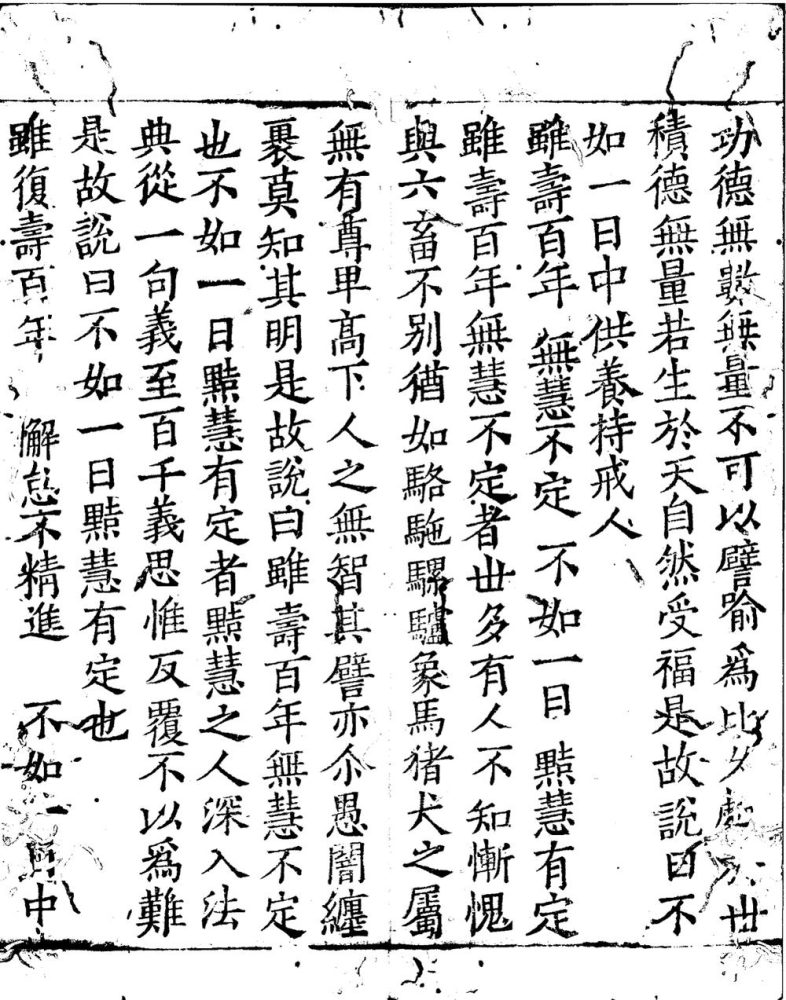 功德無數無量不可以譬喻爲比久處於世
積德無量若生於天自然受福是故說曰不
如一日中供養持戒人
雖壽百年 無慧不定 不如一日 黠慧有定
雖壽百年無慧不定者世多有人不知慚愧
與六畜不別猶如駱駞騾驢象馬猪犬之屬
無有尊卑高下人之無智其譬亦尒愚闇纏
裹莫知其明是故說曰雖壽百年無慧不定
也不如一日黠慧有定者黠慧之人深入法
典從一句義至百千義思惟反覆不以爲難
是故說曰不如一日黠慧有定也
雖復壽百年 懈怠不精進 不如一日中